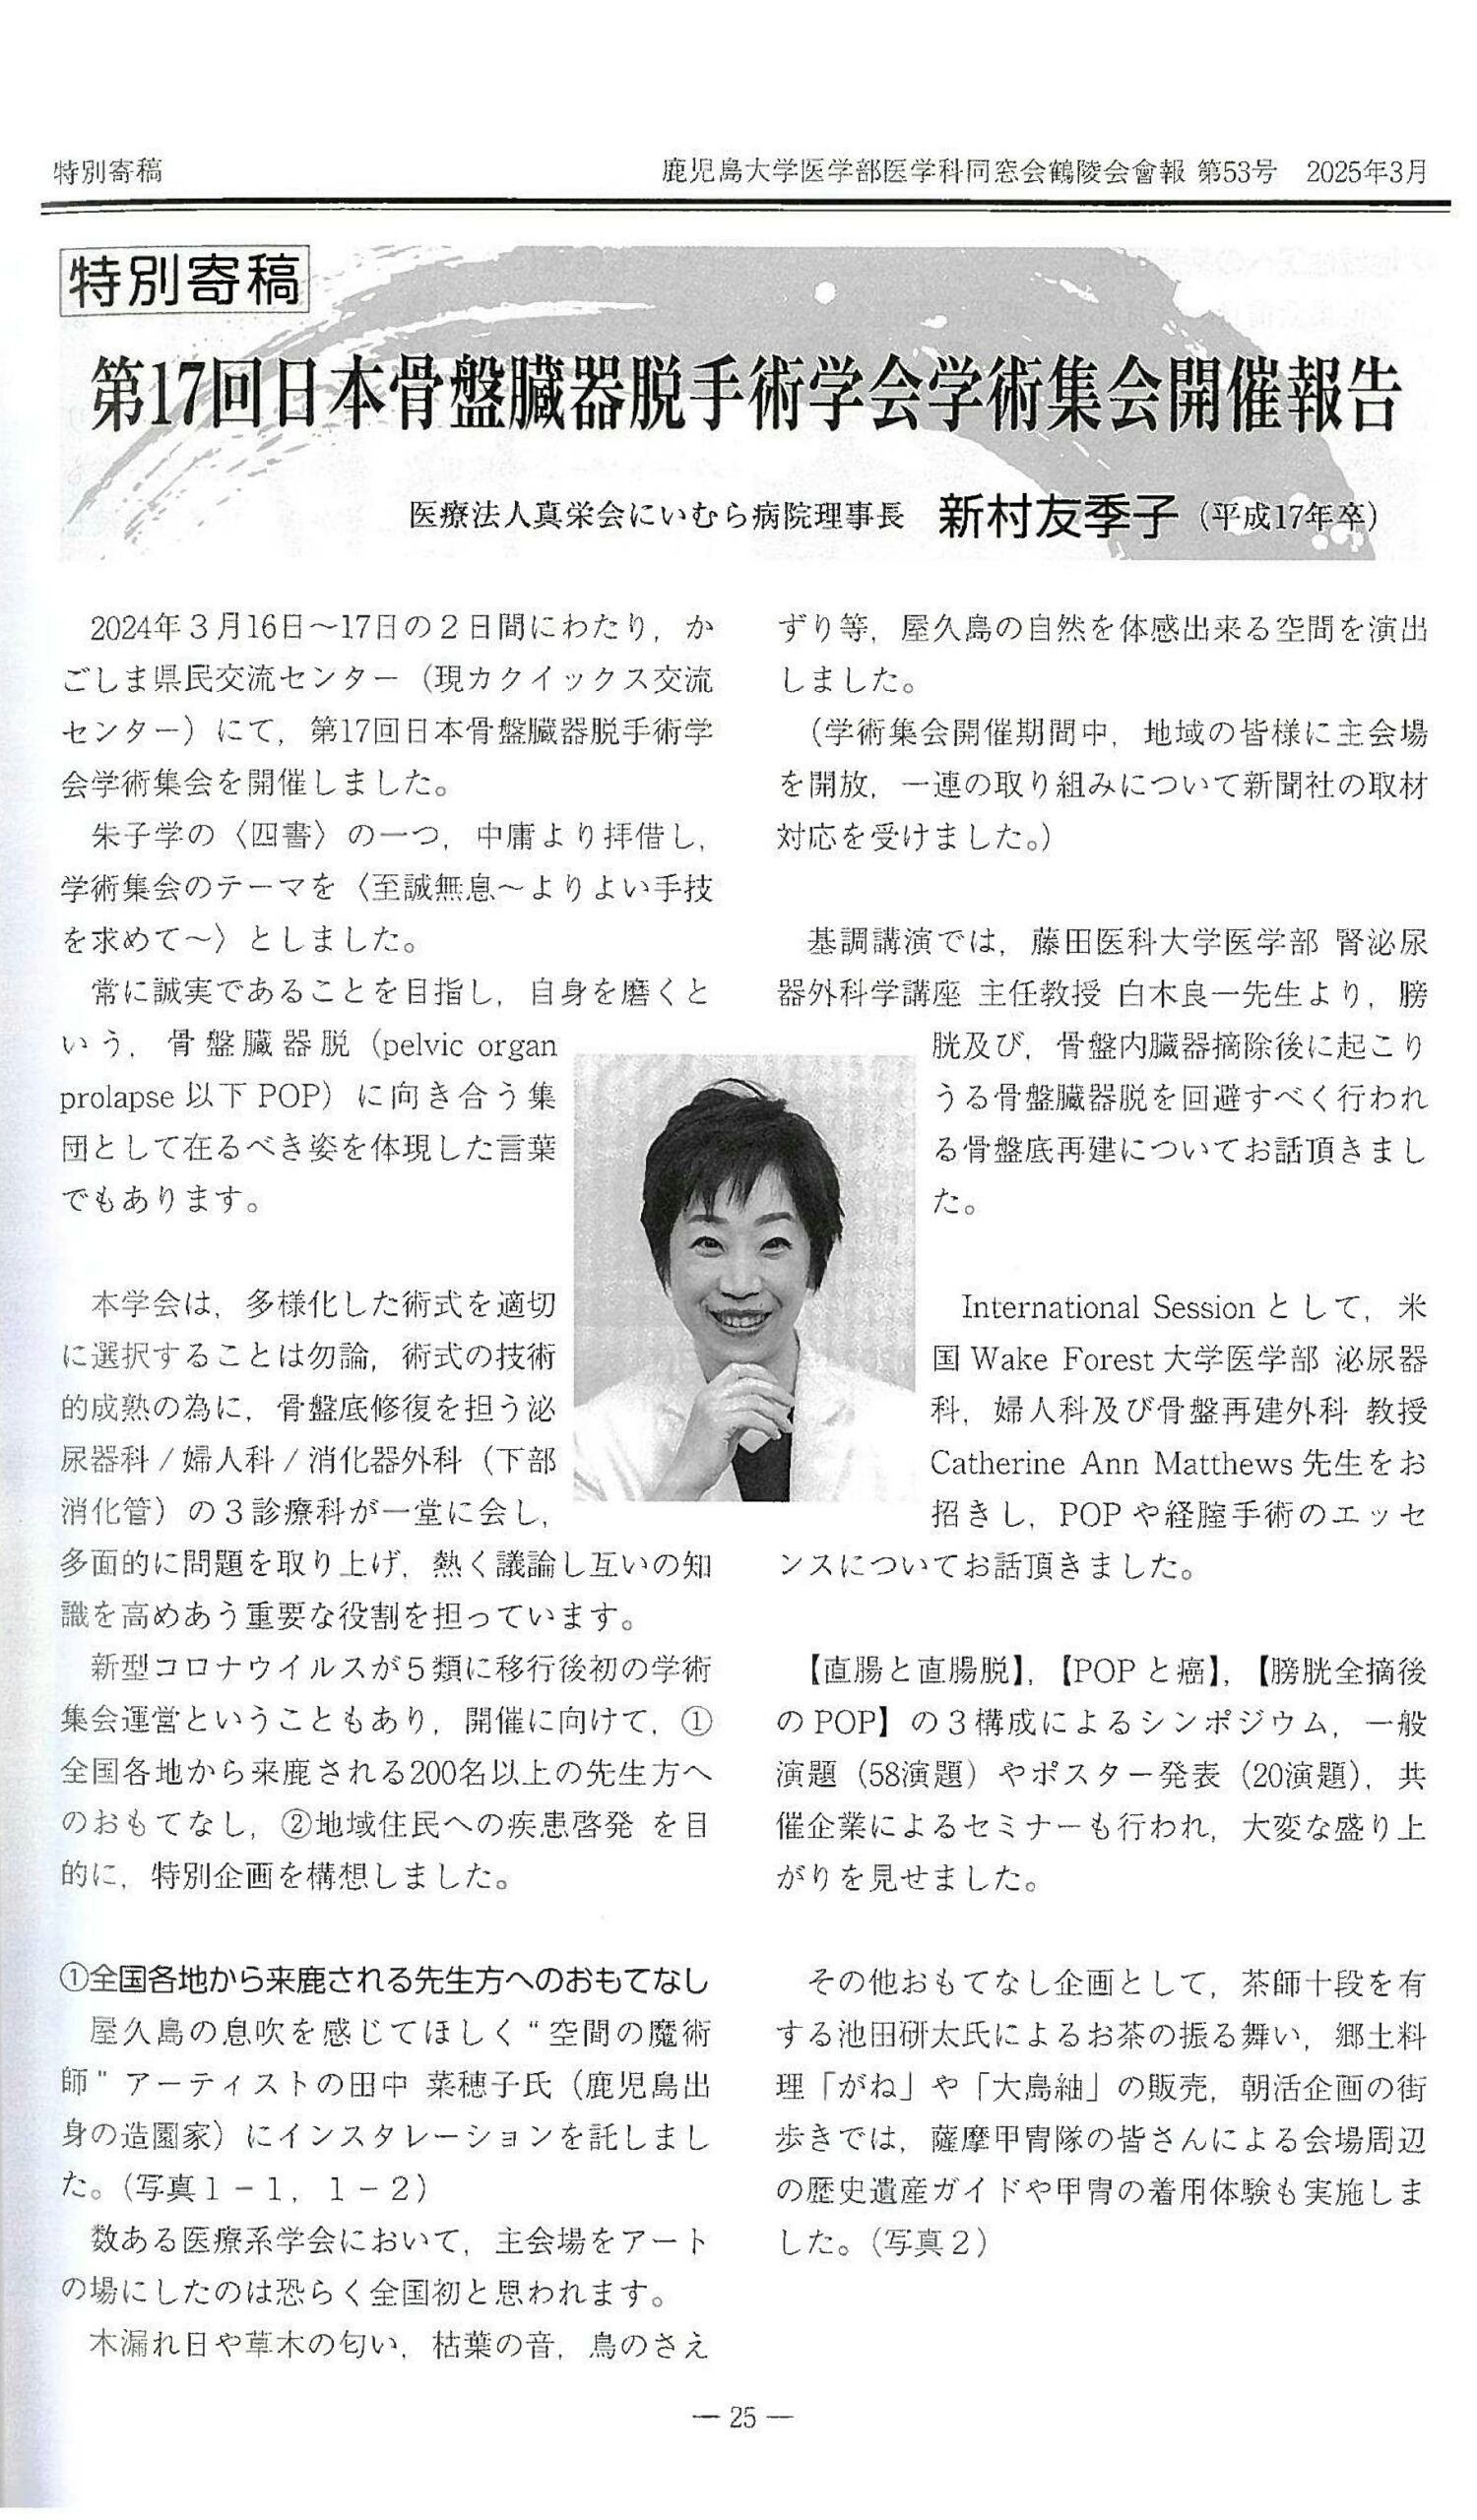 特別寄稿
鹿児島大学医学部医学科同窓会鶴陵会會報 第53号　2025年3月
特別寄稿
第17回日本骨盤臓器脱手術学会学術集会開催報告
医療法人真栄会にいむら病院理事長　新村友季子（平成17年卒）
2024年３月16日〜17日の２日間にわたり，か
ごしま県民交流センター（現カクイックス交流
センター）にて，第17回日本骨盤臓器脱手術学
会学術集会を開催しました。
朱子学の〈四書〉の一つ，中庸より拝借し，
学術集会のテーマを〈至誠無息〜よりよい手技
を求めて〜〉としました。
常に誠実であることを目指し，自身を磨くと
いう，骨盤臓器脱（pelvic organ
prolapse 以下 POP）に向き合う集
団として在るべき姿を体現した言葉
でもあります。
本学会は，多様化した術式を適切
に選択することは勿論，術式の技術
的成熟の為に，骨盤底修復を担う泌
尿器科 / 婦人科 / 消化器外科（下部
消化管）の３診療科が一堂に会し，
多面的に問題を取り上げ，熱く議論し互いの知
識を高めあう重要な役割を担っています。
新型コロナウイルスが５類に移行後初の学術
集会運営ということもあり，開催に向けて，①
全国各地から来鹿される200名以上の先生方へ
のおもてなし，②地域住民への疾患啓発 を目
的に，特別企画を構想しました。
①全国各地から来鹿される先生方へのおもてなし
屋久島の息吹を感じてほしく“空間の魔術
師”アーティストの田中 菜穂子氏（鹿児島出
身の造園家）にインスタレーションを託しまし
た。（写真１−１，１−２）
数ある医療系学会において，主会場をアート
の場にしたのは恐らく全国初と思われます。
木漏れ日や草木の匂い，枯葉の音，鳥のさえ
ずり等，屋久島の自然を体感出来る空間を演出
しました。
（学術集会開催期間中，地域の皆様に主会場
を開放，一連の取り組みについて新聞社の取材
対応を受けました。）
基調講演では，藤田医科大学医学部 腎泌尿
器外科学講座 主任教授 白木良一先生より，膀
胱及び，骨盤内臓器摘除後に起こり
うる骨盤臓器脱を回避すべく行われ
る骨盤底再建についてお話頂きまし
た。
International Session として，米
国 Wake Forest 大学医学部 泌尿器
科，婦人科及び骨盤再建外科 教授
Catherine Ann Matthews 先生をお
招きし，POP や経腟手術のエッセ
ンスについてお話頂きました。
【直腸と直腸脱】，【POP と癌】，【膀胱全摘後
の POP】の３構成によるシンポジウム，一般
演題（58演題）やポスター発表（20演題），共
催企業によるセミナーも行われ，大変な盛り上
がりを見せました。
その他おもてなし企画として，茶師十段を有
する池田研太氏によるお茶の振る舞い，郷土料
理「がね」や「大島紬」の販売，朝活企画の街
歩きでは，薩摩甲冑隊の皆さんによる会場周辺
の歴史遺産ガイドや甲冑の着用体験も実施しま
した。（写真２）
― 25 ―